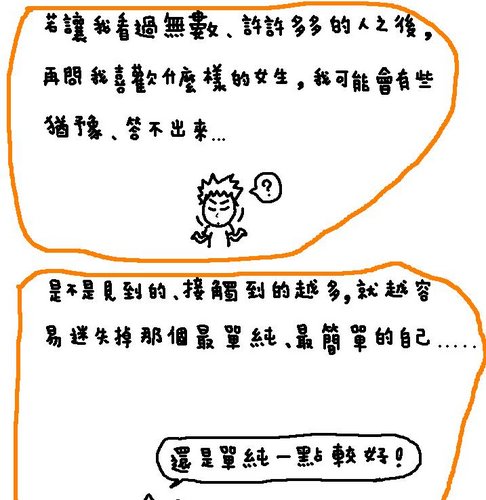 若讓我看過無數、許許多多的人之後,
再問我喜歡什麼樣的女生,我可能會有些
猶豫、答不出來...
?
是不是見到的、接觸到的越多,就越容
易迷失掉那個最單純、最簡單的自己.....
還是單純一點較好!